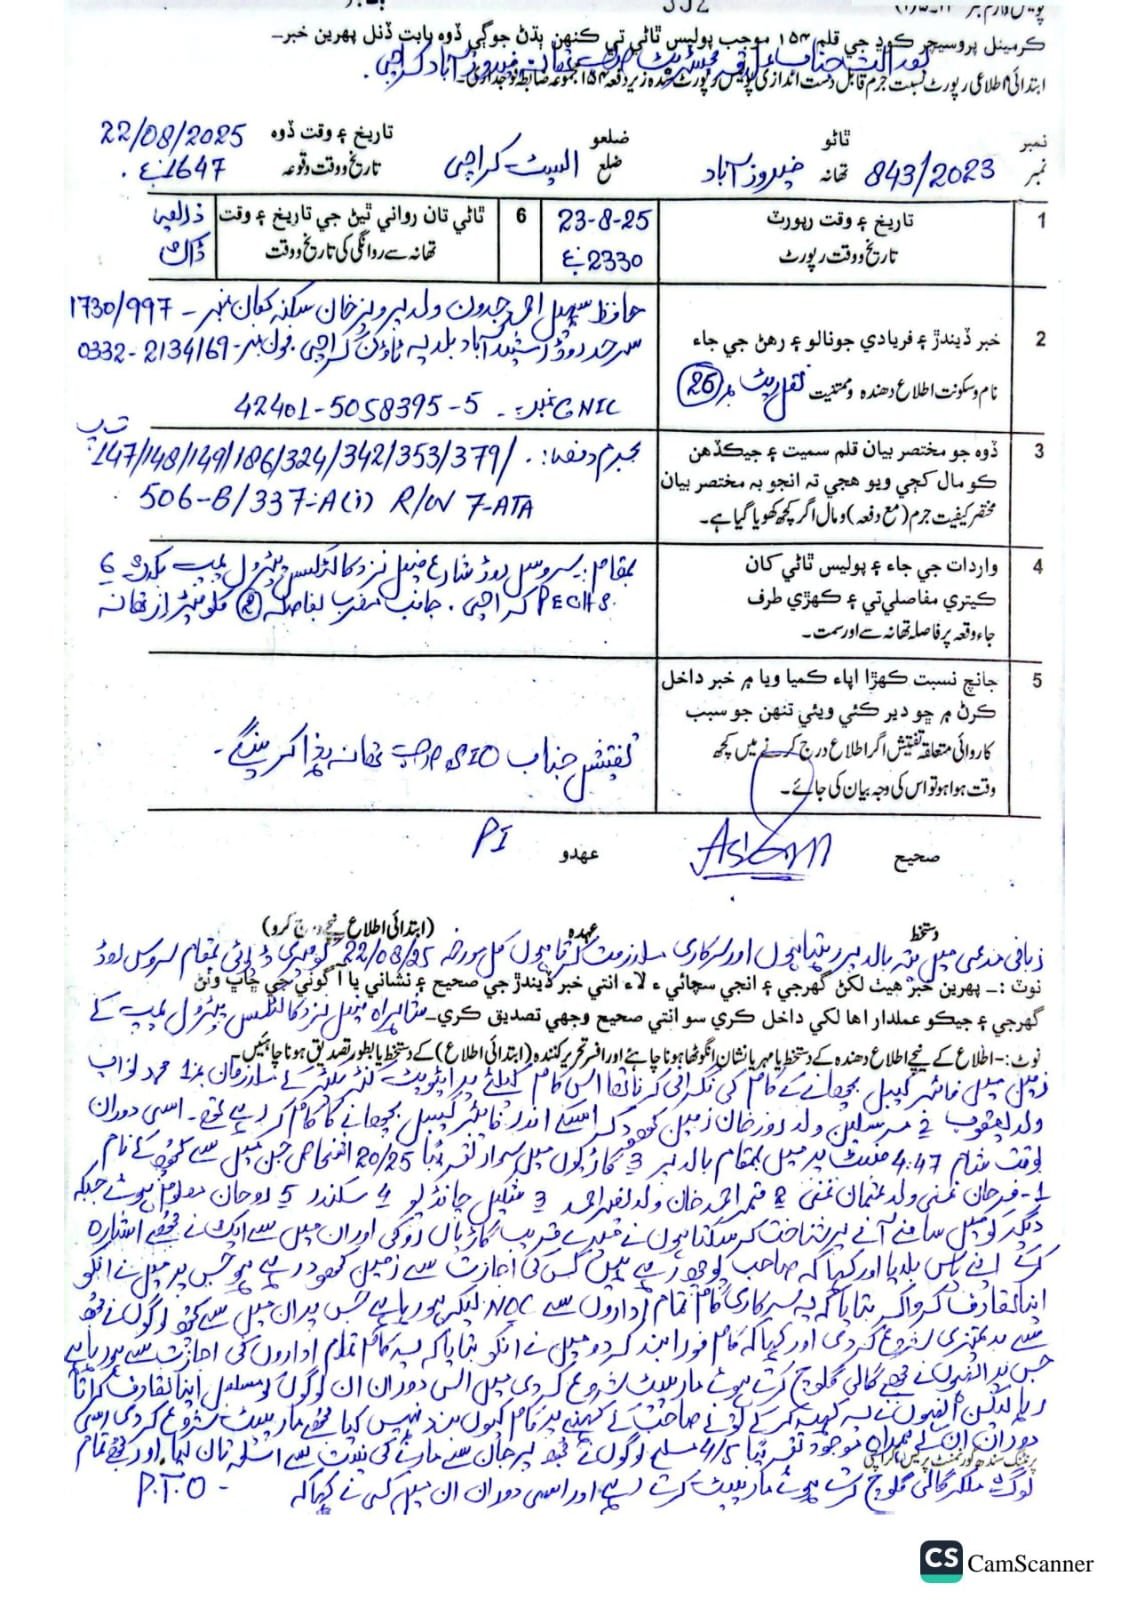 کرمینل پروسیجر کوڊ جي قلم ۱۵۴ موجب پولیس ٿاڻي تي ڪنهن ٻڌڻ جوڳي ڏوه بابت ڏنل پهرين خبر-
ابتدائی اطلاعی رپورٹ نسبت جرم قابل دست اندازی پولیس رپورٹ شدہ زیر دفعہ ۱۵۴ مجموعہ ضابطہ فوجداری-
نمبر ٿاڻو ضلعو تاريخ ۽ وقت ڏوه 22/08/2025
نمبر 843/2023 تھانہ فیروز آباد ضلع ایسٹ کراچی تاریخ و وقت وقوعہ 1647
1 تاريخ ۽ وقت رپورٽ 23-8-25 6 ٿاڻي تان رواني ٿيڻ جي تاريخ ۽ وقت ذریعہ
تاریخ و وقت رپورٹ 2330 تھانہ سے روانگی کی تاریخ و وقت ڈاک
حافظ سہیل احمد جدون ولد پرویز خان سکنہ مکان نمبر - 1730/997
2 خبر ڏيندڙ ۽ فريادي جو نالو ۽ رهڻ جي جاء سرحد روڈ رشید آباد بلدیہ ٹاؤن کراچی موبائل نمبر - 0332-2134169
نام و سکونت اطلاع دهنده و مستغیث نقل رپٹ نمبر 26 CNIC نمبر: 42401-5058395-5
3 ڏوه جو مختصر بيان قلم سميت ۽ جيڪڏهن بجرم دفعہ: 147/148/149/186/324/342/353/379/ ت پ
ڪو مال ڪڍي ويو هجي ته انجو به مختصر بيان 506-B/337-A(i) R/W 7-ATA
مختصر کیفیت جرم (مع دفعہ) و مال اگر کچھ کھویا گیا ہے۔
4 واردات جي جاء ۽ پوليس ٿاڻي کان بمقام: سروس روڈ شارع فیصل نزد کالٹیکس پیٹرول پمپ بلاک 6
ڪيتري مفاصلي تي ۽ ڪهڙي طرف PECHS کراچی . جانب مغرب بفاصلہ 2 کلومیٹر از تھانہ
جاء وقعہ پر فاصلہ تھانہ سے اور سمت۔
5 جانچ نسبت ڪهڙا اپاء ڪميا ويا ۾ خبر داخل
ڪرڻ ۾ ڇو دير ڪئي ويئي تنهن جو سبب
کاروائی متعلقہ تفتیش اگر اطلاع درج کرنے میں کچھ تفتیش جناب SIO صاحب تھانہ ہذا کرینگے ۔
وقت ہوا ہو تو اس کی وجہ بیان کی جائے۔
صحيح عهدو PI
دستخط عہدہ (ابتدائی اطلاع نیچے درج کرو)
زبانی مدعی میں پتہ بالا پر رہتا ہوں اور سرکاری ملازمت کرتا ہوں کل مورخہ 22/08/25 کو میری ڈیوٹی بمقام سروس روڈ
نوٽ :- پهرين خبر هيٺ لکڻ گهرجي ۽ انجي سچائي ء لاء انتي خبر ڏيندڙ جي صحيح ۽ نشاني يا آگوٺي جي ڇاپ وٺڻ
گهرجي ۽ جيڪو عملدار اها لکي داخل ڪري سو انتي صحيح وجهي تصديق ڪري- شاہراہ فیصل نزد کالٹیکس پیٹرول پمپ کے
نوٹ:- اطلاع کے نیچے اطلاع دھندہ کے دستخط یا مہر یا نشان انگوٹھا ہونا چاہئے اور افسر تحریر کنندہ (ابتدائی اطلاع) کے دستخط یا بطور تصدیق ہونا چاہئیں۔
زمین میں فائبر کیبل بچھانے کے کام کی نگرانی کرنا تھا اس کام کیلئے پرائیویٹ کنٹریکٹر کے ملازمان 1 محمد نواب
ولد یعقوب 2 مرسلین ولد روز خان زمین کھود کر اسکے اندر فائبر کیبل بچھانے کا کام کر رہے تھے ۔ اسی دوران
بوقت شام 4:47 منٹ پر میں بمقام بالا پر 3 گاڑیوں میں سوار تقریباً 20/25 اشخاص جن میں سے کچھ کے نام
1- فرحان غنی ولد عثمان غنی 2 قمر احمد خان ولد 3 شکیل چانڈیو 4 سکندر 5 روحان معلوم ہوئے جبکہ
دیگر کو میں سامنے آنے پر شناخت کر سکتا ہوں نے میرے قریب گاڑیاں روکی اور ان میں سے ایک نے مجھے اشارہ
کر کے اپنے پاس بلایا اور کہا کہ صاحب پوچھ رہے ہیں کس کی اجازت سے زمین کھود رہے ہو جس پر میں نے انکو
اپنا تعارف کروا کر بتایا کہ یہ سرکاری کام تمام اداروں سے NOC لیکر ہو رہا ہے جس پر ان میں سے کچھ لوگوں نے مجھ
سے بدتمیزی شروع کر دی اور کہا کہ کام فوراً بند کر دو میں نے انکو بتایا کہ یہ کام تمام اداروں کی اجازت سے ہو رہا ہے
جس پر انہوں نے مجھے گالی گلوچ کرتے ہوئے مار پیٹ شروع کر دی میں اس دوران ان لوگوں کو مسلسل اپنا تعارف کراتا
رہا لیکن انہوں نے یہ کہہ کر کے تو نے صاحب کے کہنے پر کام کیوں بند نہیں کیا مجھے مار پیٹ شروع کر دی اسی
دوران ان کے ہمراہ موجود تقریباً 4/5 مسلح لوگوں نے مجھ پر جان سے مارنے کی نیت سے اسلحہ تان لیا اور مجھے تمام
پرنٹنگ سندھ گورنمنٹ پریس کراچی
لوگ ملکر گالی گلوچ کرتے ہوئے مار پیٹ کرتے رہے اور اسی دوران ان میں کسی نے کہا کہ - P.T.O
CS CamScanner